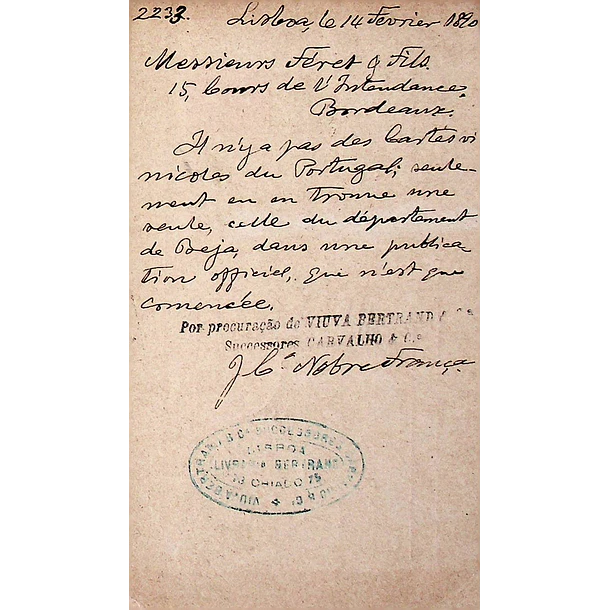 2233.
Lisboa, le 14 Février 1890
Messieurs Féret & Fils.
15, Cours de l'Intendance,
Bordeaux.
Il n'ya pas des Cartes vi
nicoles du Portugal; seule-
ment eu en trouve une
seule, celle du département
de Beja, dans une publica
tion officiel, que n'est que
comencée.
Por procuração de VIUVA BERTRAND & C.ª
Successores CARVALHO & C.ª
J. C.ª Nobre França.
VIUVA BERTRAND & Cª SUCCESSORES CARVALHO & Cª
LISBOA
LIVRARIA BERTRAND
73 CHIADO 75